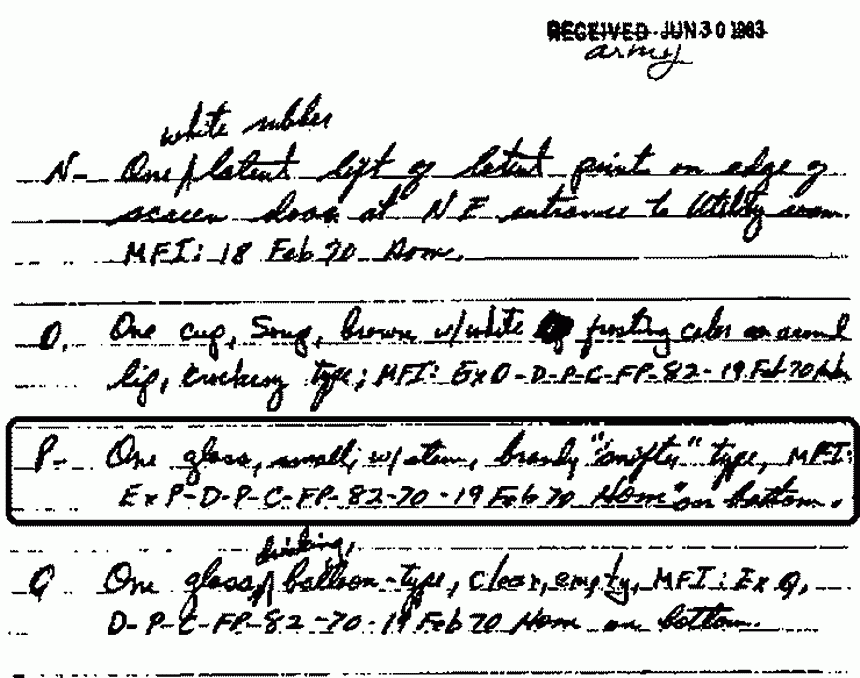 RECEIVED JUN 30 1983
army
white rubber
N- One latent lift of latent print on edge of
screen door at NE entrance to Utility room.
MFI: 18 Feb 70 Hom.
O. One cup, Song, brown w/white frosting color on around
lip, crockery type; MFI: Ex O-D-P-C-FP-82-19 Feb 70 Hom
P- One glass, small, w/stem, brandy "snifty" type, MFI:
Ex P-D-P-C-FP-82-70-19 Feb 70 Hom" on bottom.
drinking,
Q One glass, balloon-type, clear, empty, MFI: Ex Q,
D-P-C-FP-82-70-19 Feb 70 Hom on bottom.